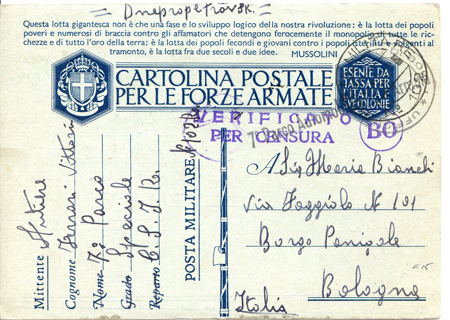 Dnepropetrovsk.
Questa lotta gigantesca non è che una fase e lo sviluppo logico della nostra rivoluzione: è la lotta dei popoli
poveri e numerosi di braccia contro gli affamatori che detengono ferocemente il monopolio di tutte le ric-
chezze e di tutto l'oro della terra: è la lotta dei popoli fecondi e giovani contro i popoli isteriliti e volgenti al
tramonto, è la lotta fra due secoli e due idee. MUSSOLINI
CARTOLINA POSTALE
PER LE FORZE ARMATE
ESENTE DA
TASSA PER
L'ITALIA
E SVE COLONIE
VERIFICATO
PER CENSURA
BO
POSTA MILITARE
Mittente
Cognome Ferrari Vittorio
Nome 7º Parco
Grado Speciale
Reparto C.S.I.R.
A Sig Maria Bianchi
Via Faggiolo N 101
Borgo Panigale
Bologna
Italia